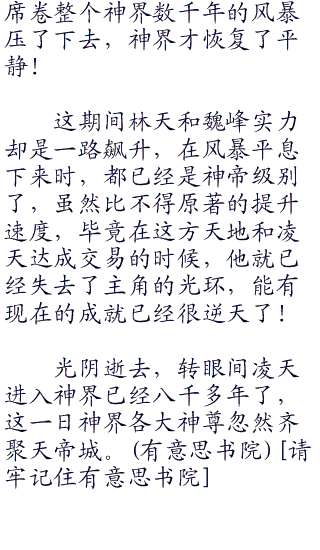 席卷整个神界数千年的风暴
压了下去，神界才恢复了平
静！
这期间林天和魏峰实力
却是一路飙升，在风暴平息
下来时，都已经是神帝级别
了，虽然比不得原著的提升
速度，毕竟在这方天地和凌
天达成交易的时候，他就已
经失去了主角的光环，能有
现在的成就已经很逆天了！
光阴逝去，转眼间凌天
进入神界已经八千多年了，
这一日神界各大神尊忽然齐
聚天帝城。(有意思书院)[请
牢记住有意思书院]